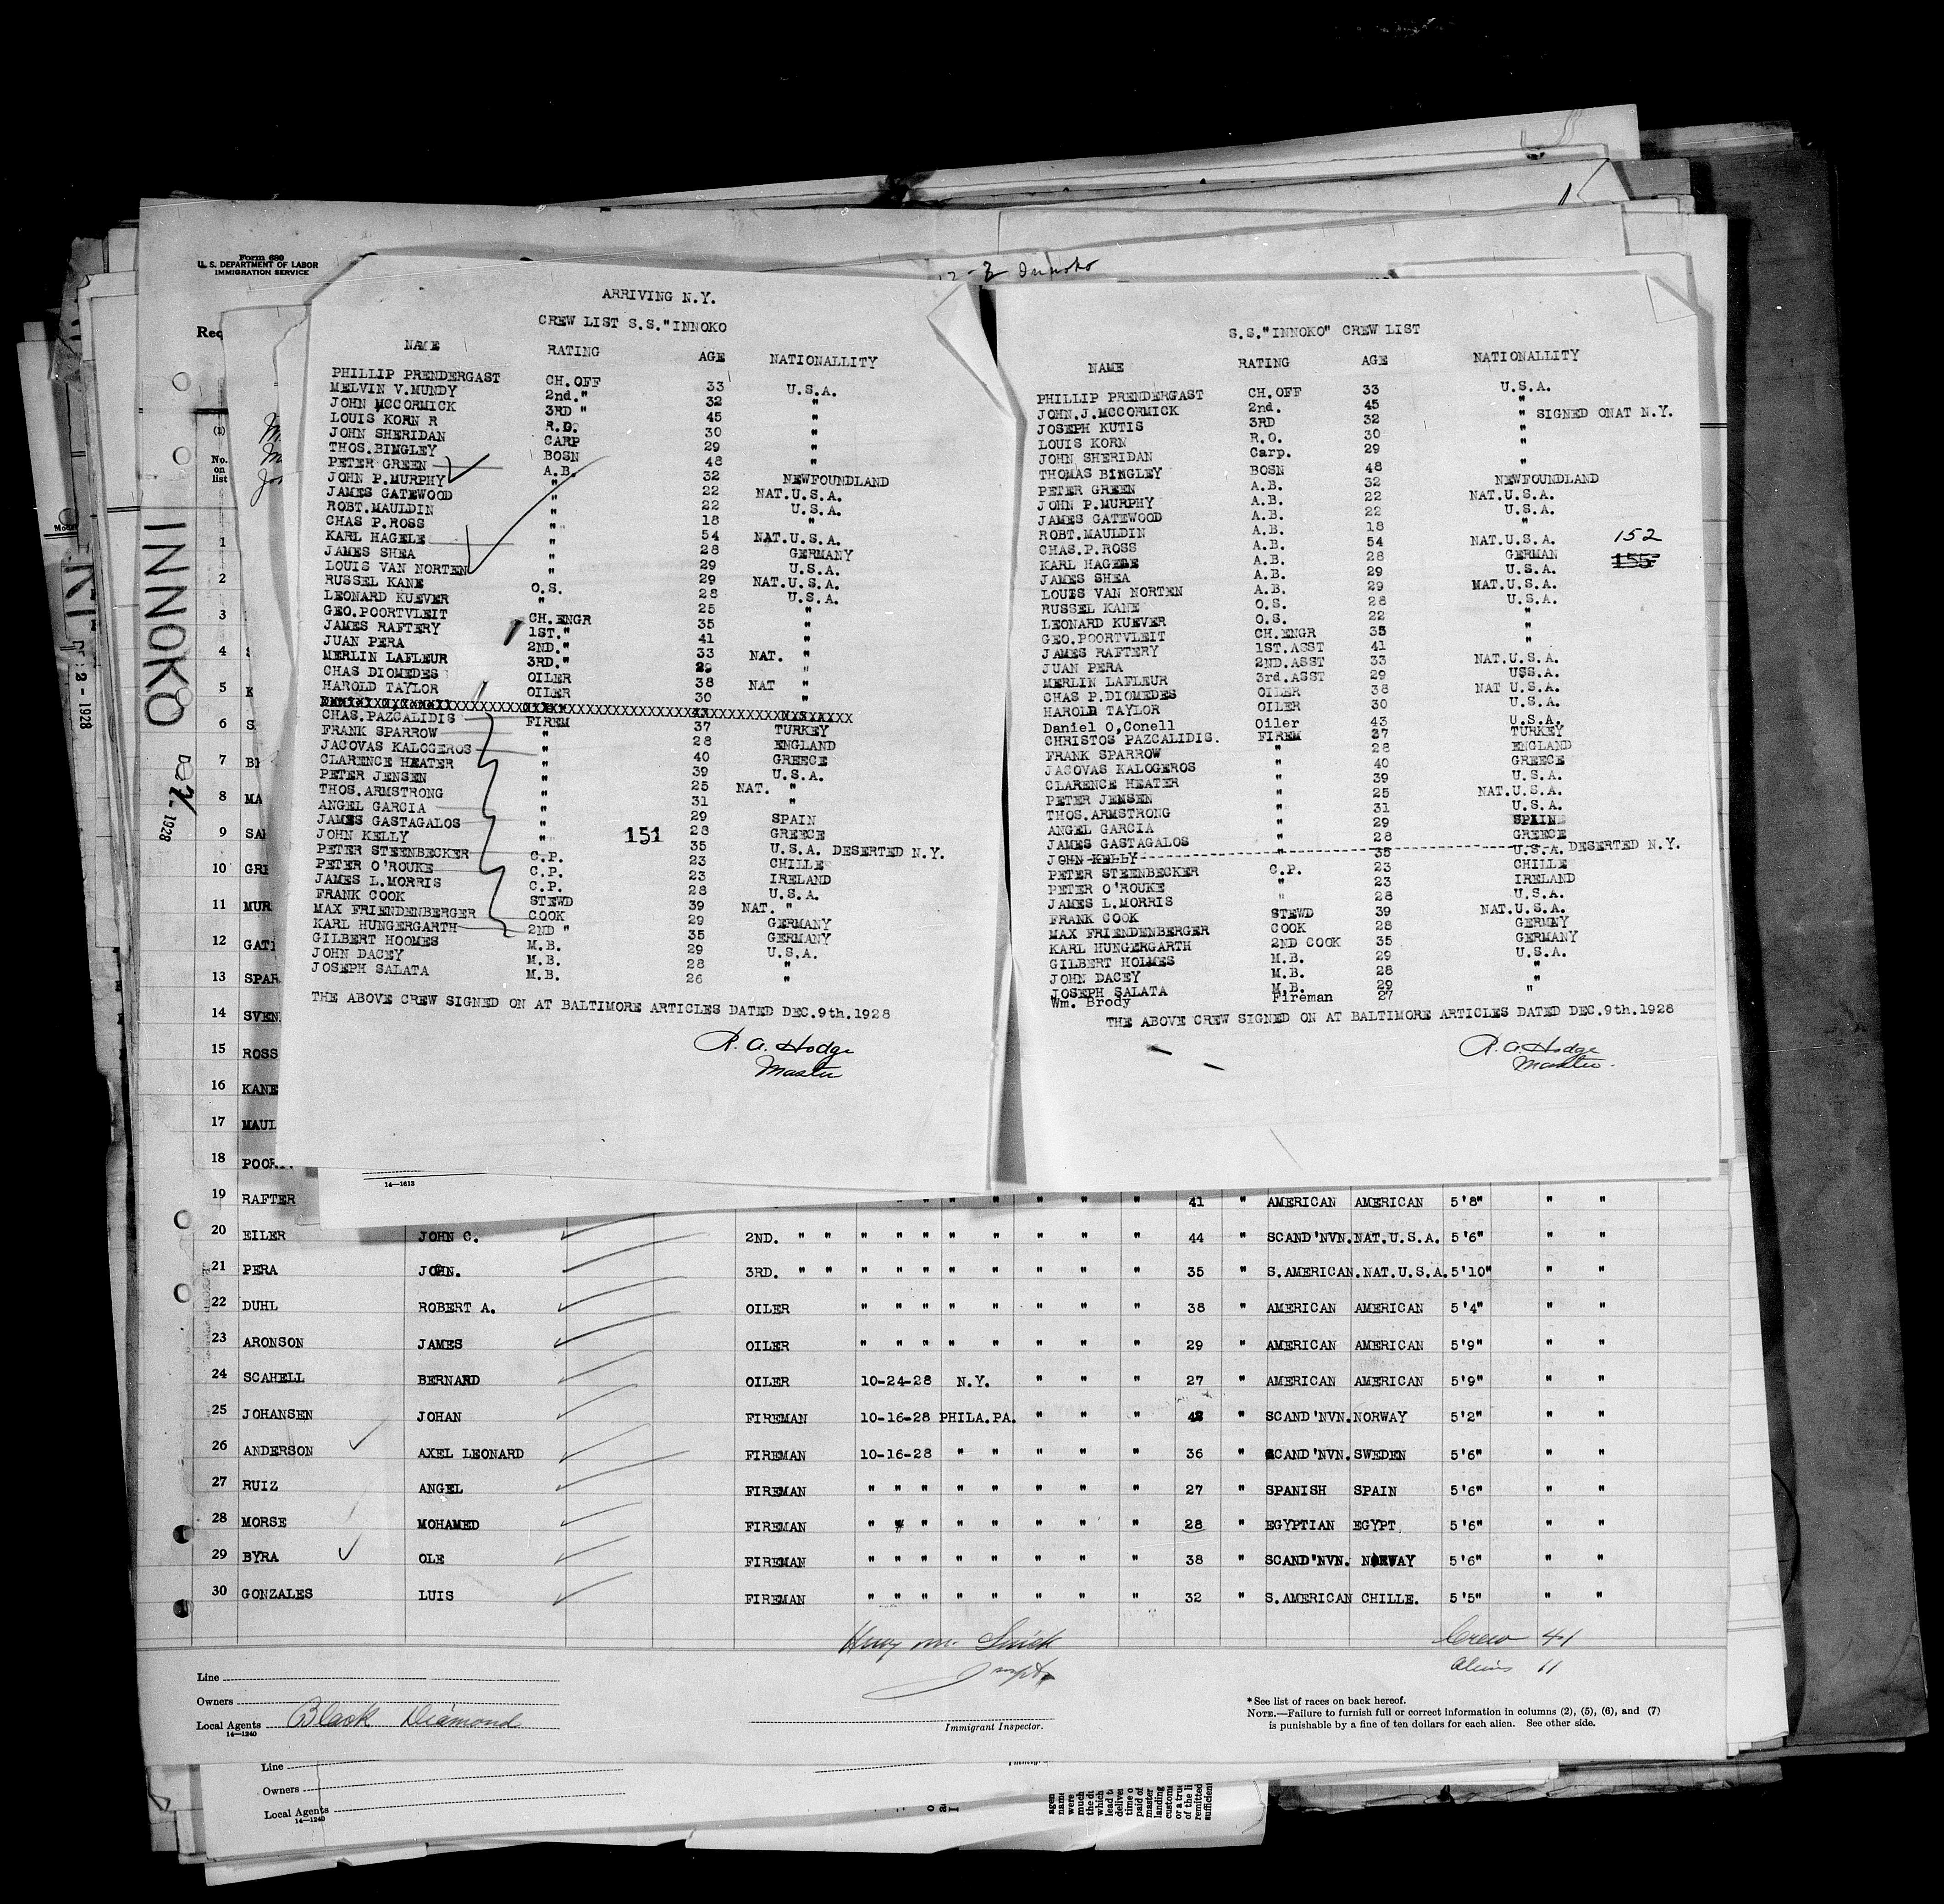 Form 680
U. S. DEPARTMENT OF LABOR
IMMIGRATION SERVICE
Innoko
ARRIVING N.Y.
CREW LIST S.S."INNOKO
NAME RATING AGE NATIONALLITY
PHILLIP PRENDERGAST CH.OFF 33 U.S.A.
MELVIN V.MUNDY 2nd." 32 "
JOHN MCCORMICK 3RD " 45 "
LOUIS KORN R R.O. 30 "
JOHN SHERIDAN CARP 29 "
THOS.BINGLEY BOSN 48 "
PETER GREEN A.B. 32 NEWFOUNDLAND
JOHN P.MURPHY " 22 NAT.U.S.A.
JAMES GATEWOOD " 22 U.S.A.
ROBT.MAULDIN " 18 "
CHAS P.ROSS " 54 NAT.U.S.A.
KARL HAGELE " 28 GERMANY
JAMES SHEA " 29 U.S.A.
LOUIS VAN NORTEN " 29 NAT.U.S.A.
RUSSEL KANE O.S. 28 U.S.A.
LEONARD KUEVER " 25 "
GEO.POORTVLEIT CH.ENGR 35 "
JAMES RAFTERY 1ST." 41 "
JUAN PERA 2ND." 33 NAT. "
MERLIN LAFLEUR 3RD." 29 "
CHAS DIOMEDES OILER 38 NAT "
HAROLD TAYLOR OILER 30 "
CHAS.PAZCALIDIS FIREM 37 TURKEY
FRANK SPARROW " 28 ENGLAND
JACOVAS KALOGEROS " 40 GREECE
CLARENCE HEATER " 39 U.S.A.
PETER JENSEN " 25 NAT. "
THOS.ARMSTRONG " 31
ANGEL GARCIA " 29 SPAIN
JAMES GASTAGALOS " 28 GREECE
JOHN KELLY " 35 U.S.A. DESERTED N.Y.
151
PETER STEENBECKER C.P. 23 CHILLE
PETER O'ROUKE C.P. 23 IRELAND
JAMES L.MORRIS C.P. 28 U.S.A.
FRANK COOK STEWD 39 NAT. "
MAX FRIENDENBERGER COOK 29 GERMANY
KARL HUNGERGARTH 2ND " 35 GERMANY
GILBERT HOOMES M.B. 29 U.S.A.
JOHN DACEY M.B. 28 "
JOSEPH SALATA M.B. 26 "
THE ABOVE CREW SIGNED ON AT BALTIMORE ARTICLES DATED DEC.9th.1928
R. A. Hodge
Master
S.S."INNOKO" CREW LIST
NAME RATING AGE NATIONALLITY
PHILLIP PRENDERGAST CH.OFF 33 U.S.A.
JOHN.J.MCCORMICK 2nd. 45 "
JOSEPH KUTIS 3RD 32 " SIGNED ONAT N.Y.
LOUIS KORN R.O. 30 "
JOHN SHERIDAN Carp. 29 "
THOMAS BINGLEY BOSN 48 "
PETER GREEN A.B. 32 NEWFOUNDLAND
JOHN P.MURPHY A.B. 22 NAT.U.S.A.
JAMES GATEWOOD A.B. 22 U.S.A.
ROBT.MAULDIN A.B. 18 "
CHAS.P.ROSS A.B. 54 NAT.U.S.A.
KARL HAGELE A.B. 28 GERMAN
JAMES SHEA A.B. 29 U.S.A.
LOUIS VAN NORTEN A.B. 29 MAT.U.S.A.
152
155
RUSSEL KANE O.S. 28 U.S.A.
LEONARD KUEVER O.S. 22 "
GEO.POORTVLEIT CH.ENGR 35 "
JAMES RAFTERY 1ST.ASST 41 "
JUAN PERA 2ND.ASST 33 NAT.U.S.A.
MERLIN LAFLEUR 3rd.ASST 29 USS.A.
CHAS P.DIOMEDES OILER 38 NAT U.S.A.
HAROLD TAYLOR OILER 30 U.S.A.
Daniel O,Conell Oiler 43 U.S.A.
CHRISTOS PAZCALIDIS. FIREM 37 TURKEY
FRANK SPARROW " 28 ENGLAND
JACOVAS KALOGEROS " 40 GREECE
CLARENCE HEATER " 39 U.S.A.
PETER JENSEN " 25 NAT.U.S.A.
THOS.ARMSTRONG " 31 U.S.A.
ANGEL GARCIA " 29 SPAIN
JAMES GASTAGALOS " 28 GREECE
JOHN KELLY " 35 U.S.A. DESERTED N.Y.
PETER STEENBECKER C.P. 23 CHILLE
PETER O'ROUKE " 23 IRELAND
JAMES L.MORRIS " 28 U.S.A.
FRANK COOK STEWD 39 NAT.U.S.A.
MAX FRIENDENBERGER COOK 28 GERMENY
KARL HUNGERGARTH 2ND COOK 35 GERMANY
GILBERT HOLMES M.B. 29 U.S.A.
JOHN DACEY M.B. 28 "
JOSEPH SALATA M.B. 29 "
Wm. Brody Fireman 27
THE ABOVE CREW SIGNED ON AT BALTIMORE ARTICLES DATED DEC.9th.1928
R. A. Hodge
Master.
INNOKO
1928
2 - 1928
Req
(1)
No.
on
list
1
2
3
4 S
5 K
6 S
7
8 MA
9
10
11 MUR
12
13 SPAR
14
15 ROSS
16 KANE
17 MAUL
18
14—1613
19 RAFTER " " " " " " 41 " AMERICAN AMERICAN 5'8" " "
20 EILER JOHN C. 2ND. " " " " " " " " " " 44 " SCAND'NVN. NAT.U.S.A. 5'6" " "
21 PERA JOHN. 3RD. " " " " " " " " " " 35 " S.AMERICAN. NAT.U.S.A. 5'10" " "
22 DUHL ROBERT A. OILER " " " " " " " " 38 " AMERICAN AMERICAN 5'4" " "
23 ARONSON JAMES OILER " " " " " " " " 29 " AMERICAN AMERICAN 5'9" " "
24 SCAHELL BERNARD OILER 10-24-28 N.Y. " " " 27 " AMERICAN AMERICAN 5'9" " "
25 JOHANSEN JOHAN FIREMAN 10-16-28 PHILA.PA. " " " 42 " SCAND'NVN. NORWAY 5'2" " "
26 ANDERSON AXEL LEONARD FIREMAN 10-16-28 " " " " " 36 " SCAND'NVN. SWEDEN 5'6" " "
27 RUIZ ANGEL FIREMAN " " " " " " " " 27 " SPANISH SPAIN 5'6" " "
28 MORSE MOHAMED FIREMAN " " " " " " " " 28 " EGYPTIAN EGYPT 5'6" " "
29 BYRA OLE FIREMAN " " " " " " " " 38 " SCAND'NVN. NORWAY 5'6" " "
30 GONZALES LUIS FIREMAN " " " " " " " " 32 " S.AMERICAN CHILLE. 5'5" " "
Crew 41
Aliens 11
Line
Owners
Local Agents Black Diamond
14—1240
Immigrant Inspector.
*See list of races on back hereof.
NOTE.—Failure to furnish full or correct information in columns (2), (5), (6), and (7)
is punishable by a fine of ten dollars for each alien. See other side.
Line
Owners
Local Agents
14—1240